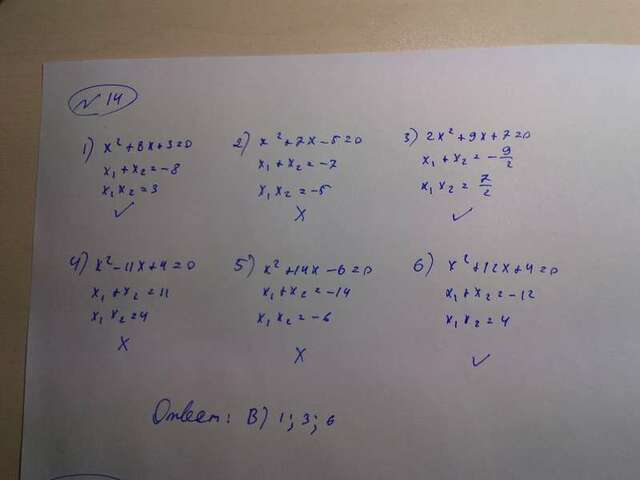 № 14
1) x² + 8x + 3 = 0
x₁ + x₂ = -8
x₁x₂ = 3
✓
2) x² + 7x - 5 = 0
x₁ + x₂ = -7
x₁x₂ = -5
X
3) 2x² + 9x + 7 = 0
x₁ + x₂ = -9/2
x₁x₂ = 7/2
✓
4) x² - 11x + 4 = 0
x₁ + x₂ = 11
x₁x₂ = 4
X
5) x² + 14x - 6 = 0
x₁ + x₂ = -14
x₁x₂ = -6
X
6) x² + 12x + 4 = 0
x₁ + x₂ = -12
x₁x₂ = 4
✓
Ответ: В) 1; 3; 6